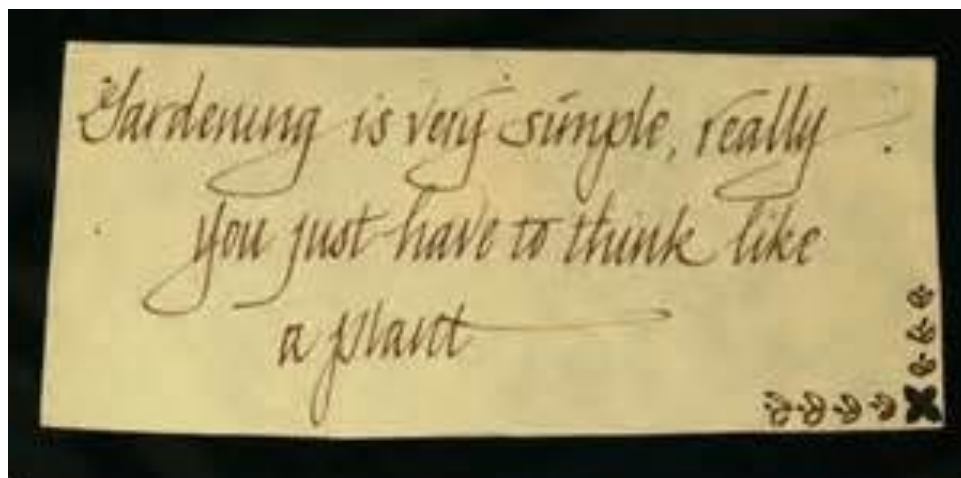 Gardening is very simple, really.
you just have to think like
a plant